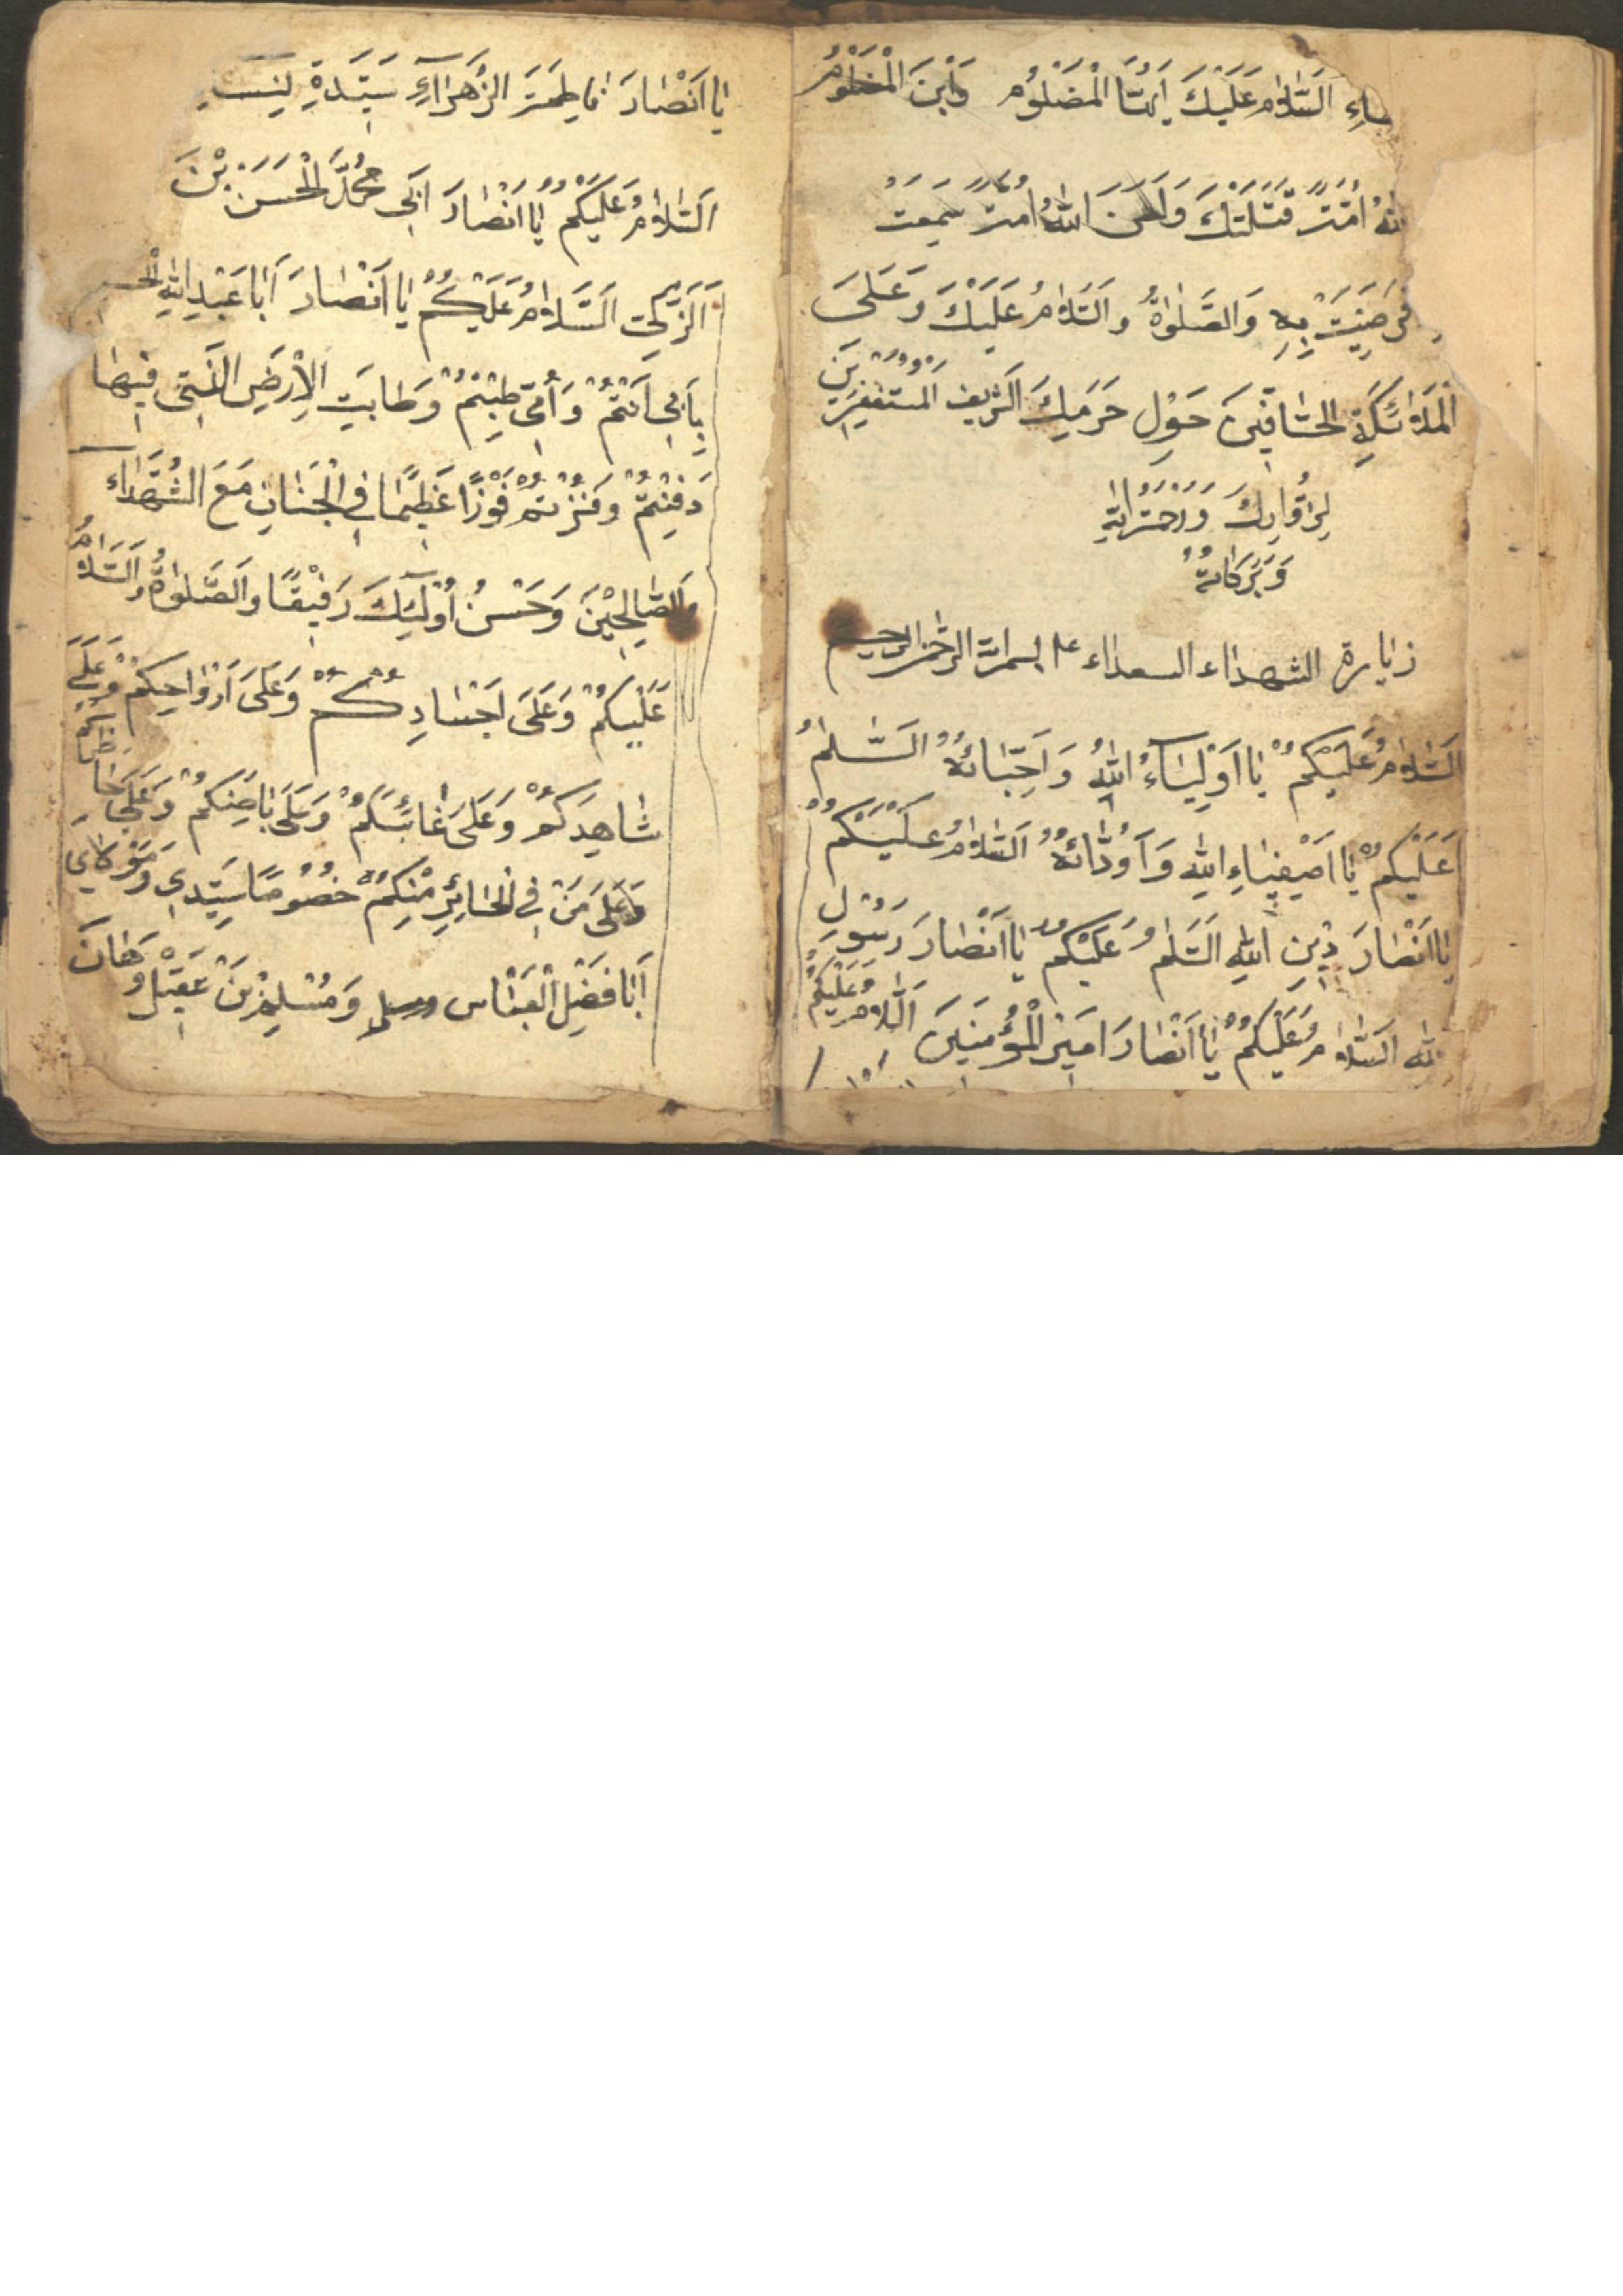 ساءِ اَلسَّلَامُ عَلَيْكَ اَيُّهَا الْمَضْلُوُمْ وَابْنَ الْمَضْلُومْ
اللهُ اُمَّةً قَتَلَتْكَ وَلَعَنَ اللهُ اُمَّةً سَمِعَتْ
فَرَضِيَتْ بِهِ وَالصَّلٰوةُ وَالسَّلامُ عَلَيْكَ وَعَلَى
الْمَلَائِكَةِ الْحَافّيِنَ حَوْلِ حَرَمِكَ الشَّرِيف الْمُسْتَغْفِرِيِنَ
لِزُوّارِكَ وَرَحْمَةُ اللهِ
وَبَرَكَاتهُ
زيارة الشهداء السعداء ع بسم الله الرحمن الرحيم
اَلسَّلامُ عَلَيْكُمْ يَا اَوْلِيَآءُ اللهِ وَاَحِبّائهُ السَّلٰمُ
عَلَيْكُمْ يَا اَصْفِيَاءِ اللهِ وَاَوُدّائهُ السَّلامُ عَلَيْكُمْ
يَا اَنْصَارَ دِيْنِ اللهِ السَّلٰمُ عَلَيْكُمْ يَا اَنْصَارَ رَسُوْلِ
الله السَّلامُ عَلَيْكُمْ يَا اَنْصَارَ اَمِيْرَ الْمُؤْمِنيَنَ اَلسَّلامُ عَلَيْكُمْ
يَا اَنْصَارَ فَاطِمَةَ الزَّهَرَآءِ سَيِّدَةِ نِسَ
اَلسَّلامُ عَلَيْكُمْ يَا اَنْصَارَ اَبِي مُحَمَّدَ الْحَسَنَ بْنَ
اَلزَّكِيِّ اَلسَّلامُ عَلَيْكُمْ يَا اَنْصَارَ اَبَا عَبْدِ اللهِ الْحس
بِاَبِى اَنْتُمْ وَاُمِّى طِبْتُمْ وَطَابَتِ الْاِرْضِ الَّتِى فِيهَا
دَفِنْتُمْ وَفُزْتُمْ فَوْزًا عَظِيْمًا فِي الْجَنَانِ مَعَ الشُّهَدَاء
وَالصَّالِحِيْنَ وَحَسُنَ اُوْلٰئِكَ رَفِيْقًا وَالصَّلٰوةُ وَالسَّلَامُ
عَلَيْكُمْ وَعَلَى اَجْسَادِكُمْ وَعَلَى اَرْوَاحِكُمْ وَعَلَى
شَاهِدِكُمْ وَعَلَى غَائِبَكُمْ وَعَلَى بَاضِنِكُمْ وَعَلَى ظَاهِرِكُمْ
وَعَلَى مَنْ فِي الْحَائِرِ مِنْكُمْ خُصُوْصًا سَيِّدِي وَمَوْلَاي
اَبَا فَضْلِ الْعَبَّاس وَمُسْلِمْ بَنْ عَقَيْل وَهَانَ